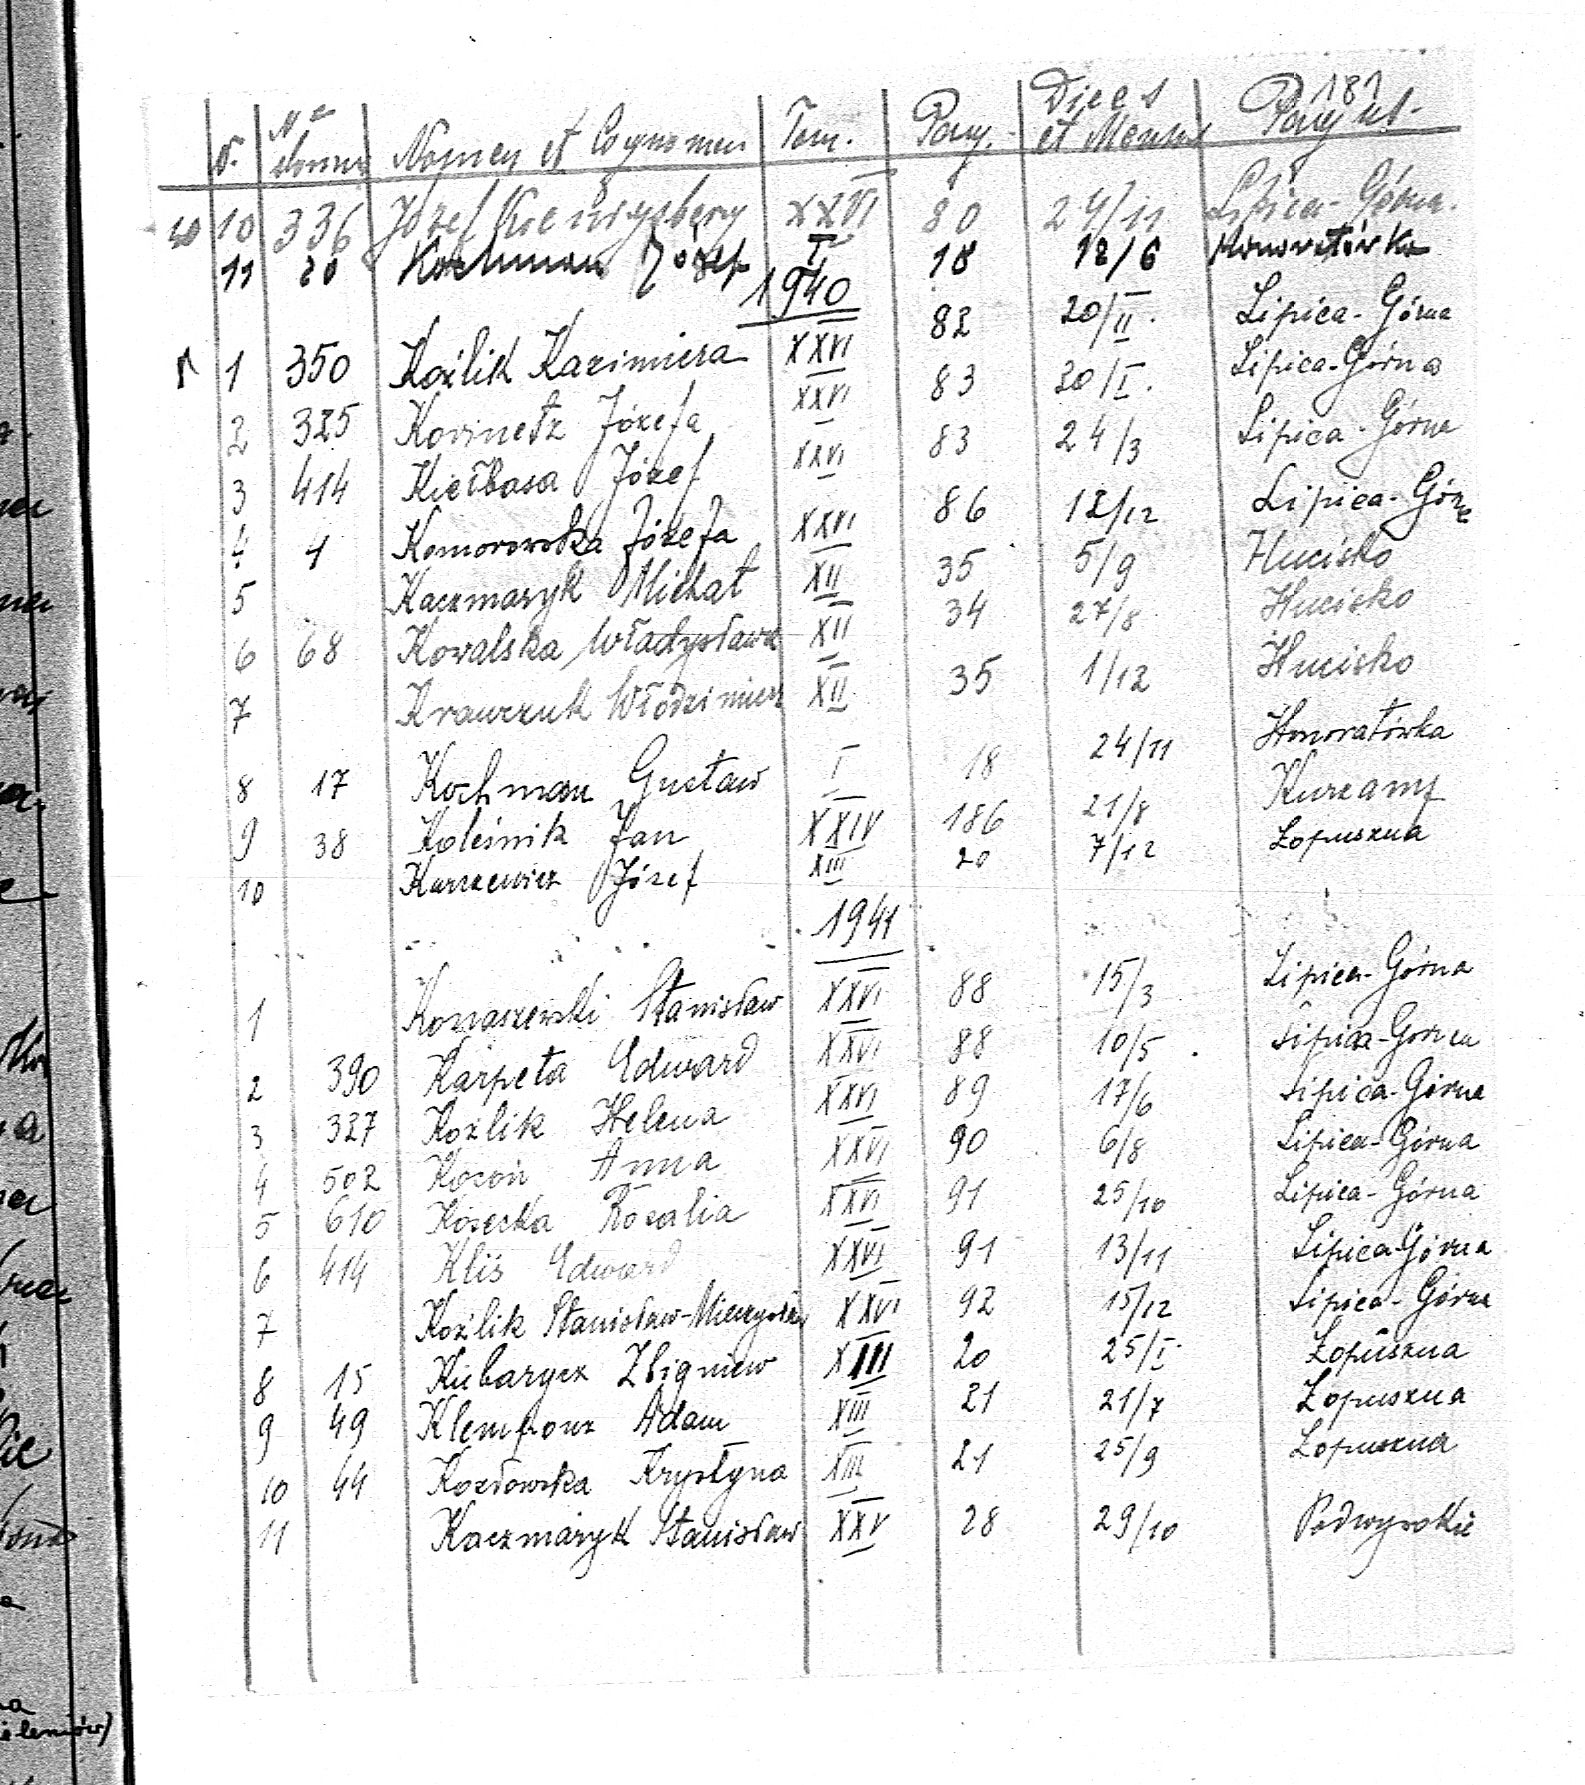 181
N. Nº domus Nomen et Cognomen Tom. Pag. Dies et Mensis
10 336 Józef Koenigsberg XXVI 80 24/11 Lipica-Górna.
11 20 Kochman Józef I 18 12/6 Honoratówka
1940
1 350 Koźlik Kazimiera XXVI 82 20/II. Lipica-Górna
2 325 Korinetz Józefa XXVI 83 20/I. Lipica-Górna
3 414 Kiełbasa Józef XXVI 83 24/3 Lipica-Górna
4 4 Komorowska Józefa XXVI 86 12/12 Lipica-Górne
5 Kaczmaryk Michał XII 35 5/9 Hucisko
6 68 Kowalska Władysława XII 34 27/8 Hucisko
7 Krawczuk Włodzimierz XII 35 1/12 Hucisko
8 17 Kochman Gustaw I 18 24/11 Honoratówka
9 38 Koleśnik Jan XXIV 186 21/8 Kurzany
10 Karszewicz Józef XIII 20 7/12 Łopuszna
1941
1 Konaszewski Stanisław XXVI 88 15/3 Lipica-Górna
2 390 Karpeta Edward XXVI 88 10/5 Lipica-Górna
3 327 Koźlik Helena XXVI 89 17/6 Lipica-Górna
4 502 Kozoń Anna XXVI 90 6/8 Lipica-Górna
5 610 Kosecka Rozalia XXVI 91 25/10 Lipica-Górna
6 414 Kliś Edward XXVI 91 13/11 Lipica-Górna
7 Koźlik Stanisław-Mieczysław XXVI 92 15/12 Lipica-Górna
8 15 Kubarycz Zbigniew XIII 20 25/I. Łopuszna
9 49 Klempouz Adam XIII 21 21/7 Łopuszna
10 44 Kozłowska Krystyna XIII 21 25/9 Łopuszna
11 Kaczmaryk Stanisław XXV 28 29/10 Podwysokie